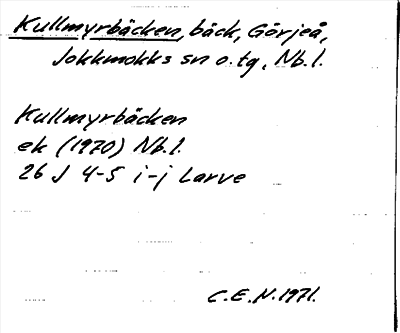 Kullmyrbäcken, bäck, Görjeå,
Jokkmokks sn o. tg, Nb.l.
Kullmyrbäcken
ek (1970) Nb.l.
26 J 4-5 i-j Larve
C.E.N. 1971.